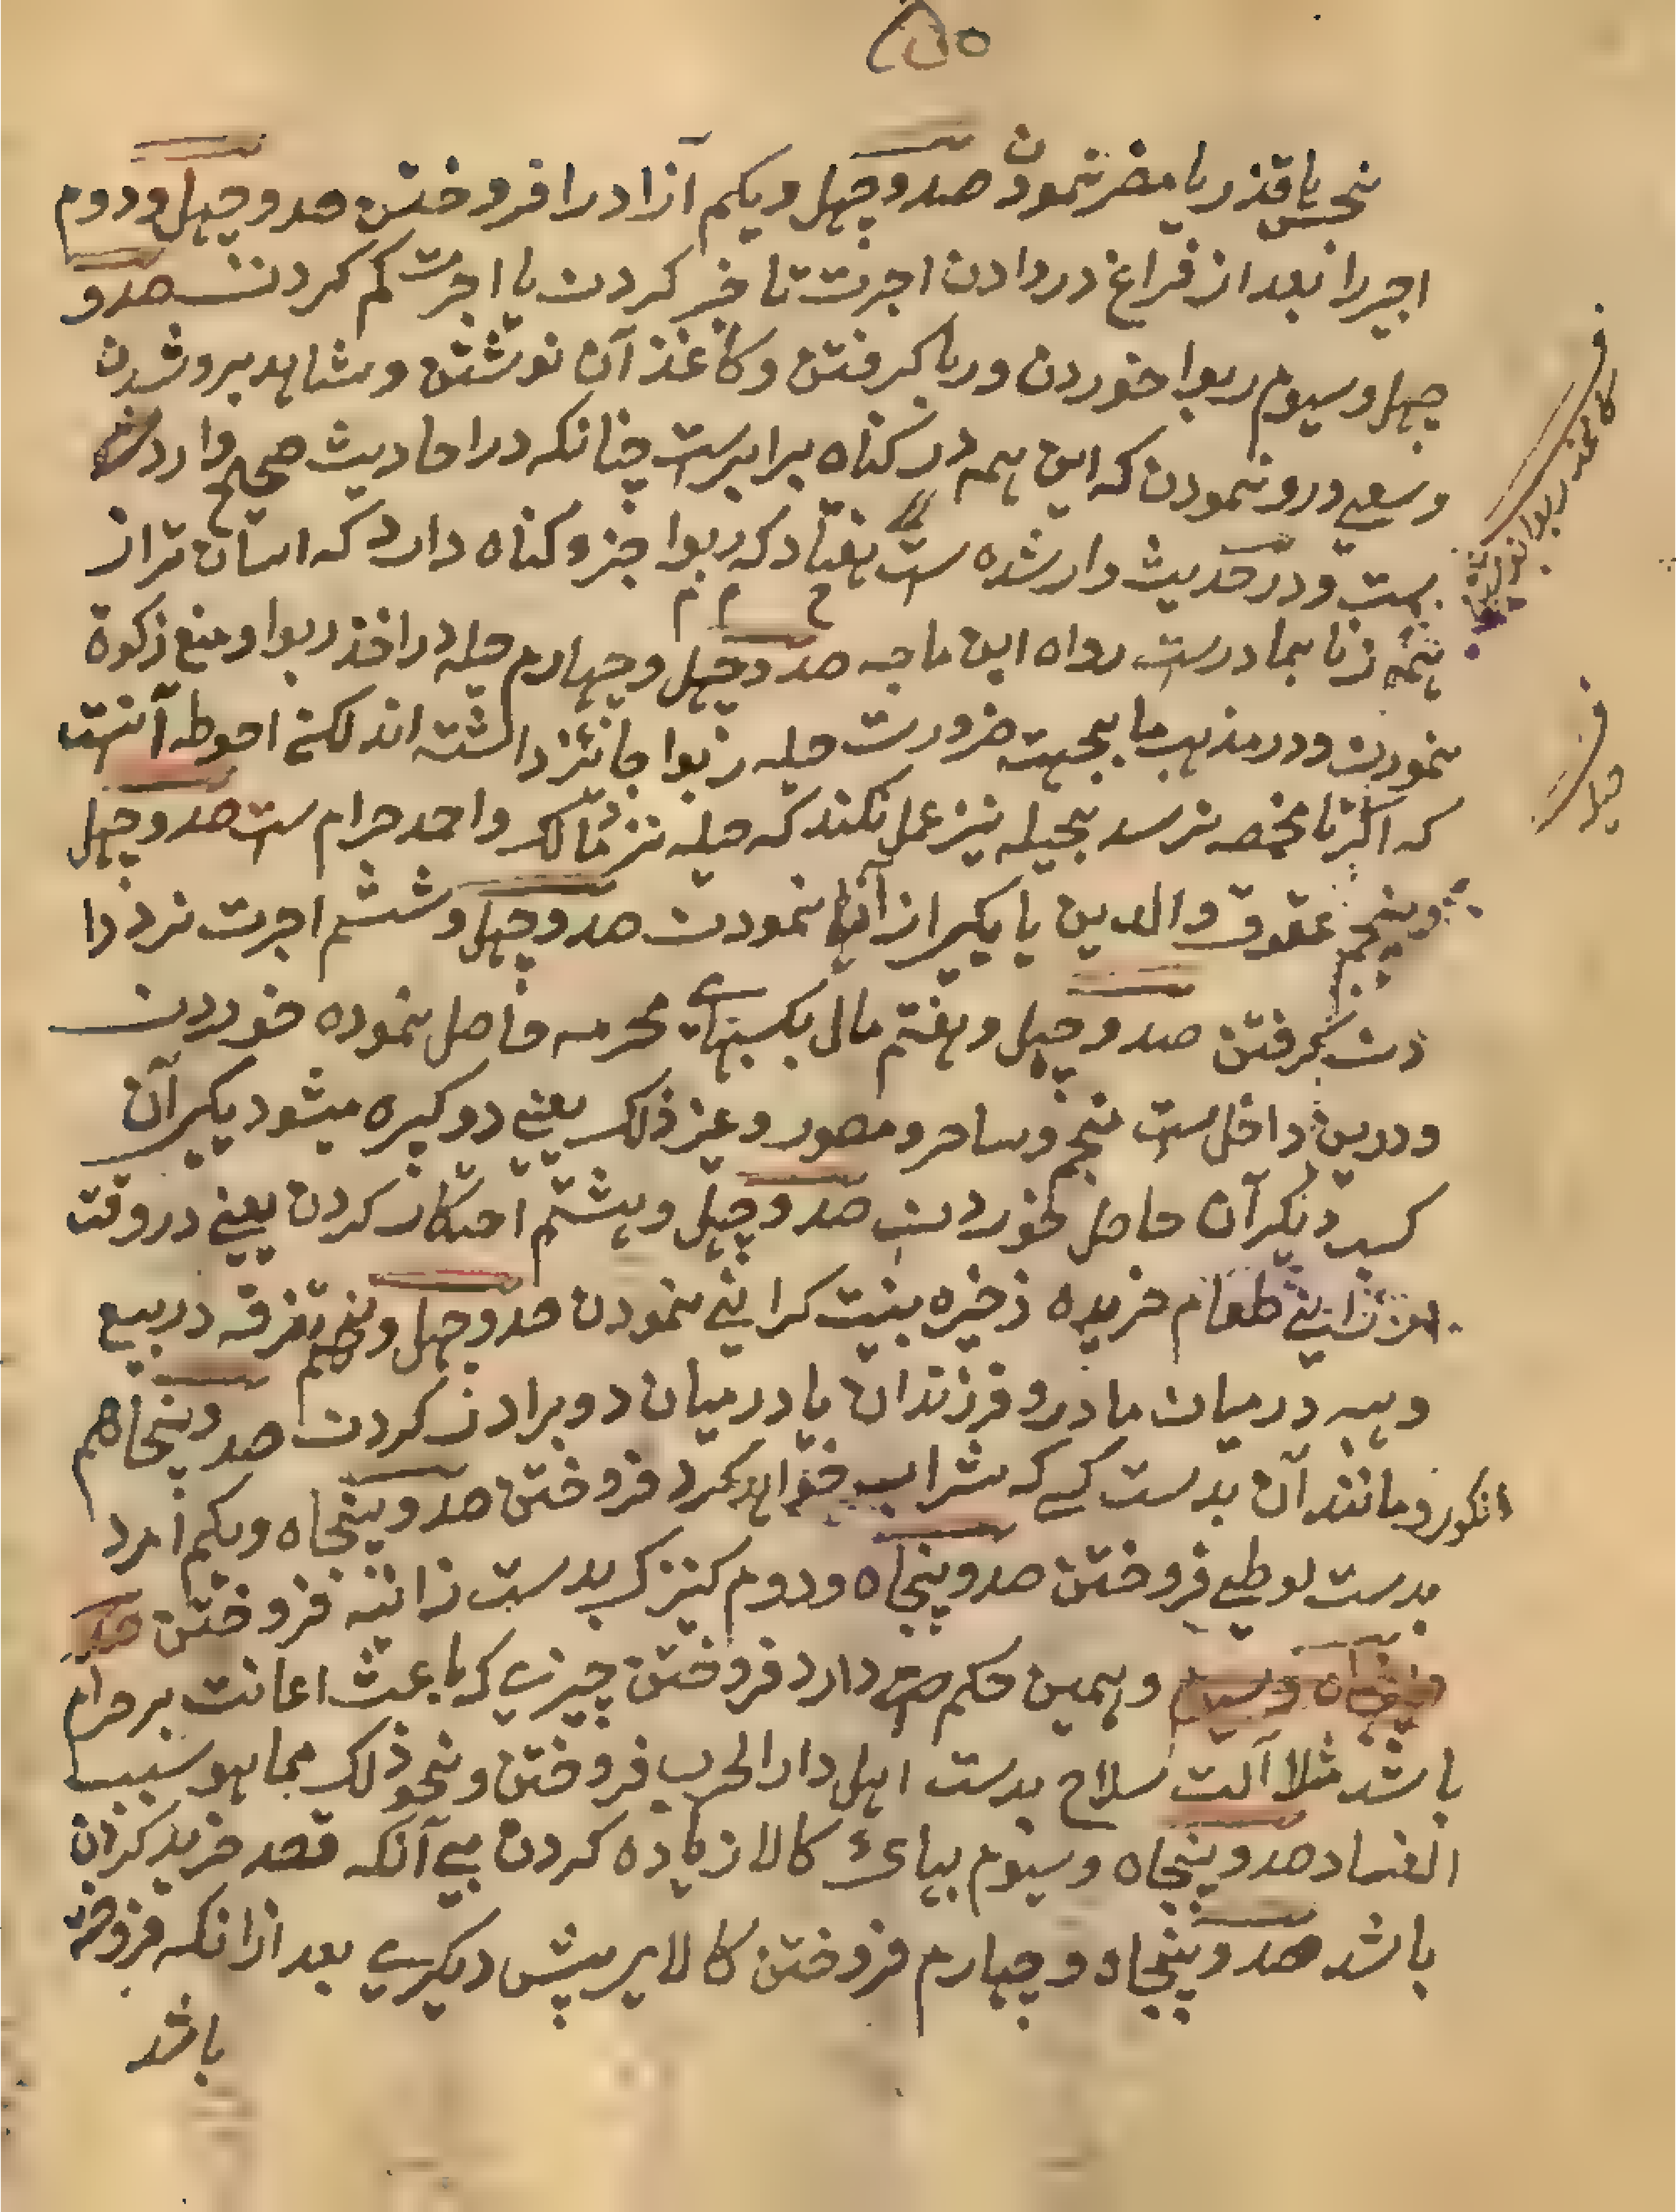 ۵۰
نجس یا قذر یا مضر نمودن صد و چهل و یکم آزاد را فروختن صد و چهل و دوم
اجیر را بعد از فراغ در دادن اجرت تاخیر کردن یا اجرت کم کردن صد و
چهل و سیوم ربوا خوردن و ربا گرفتن و کاغذ آن نوشتن و شاهد برو شدن
و سعی درو نمودن که این همه در کناه برابرست چنانکه در احادیث صحیح وارد
ست و در حدیث وارد شده ست هفتاد که ربوا جزو کناه دارد که اسان تر از
همه زنا بمادرست رواه ابن ماجه صد و چهل و چهارم حیله در اخذ ربوا و منع زکوة
نمودن و در مذهب ما بجهت ضرورت حیله ربوا جائز داشته اند لکن احوط آنست
که اگر تا مخمصه نرسد بحیله نیز عمل نکند که حیله نزد مالک و احمد حرام ست صد و چهل
و پنجم عقوق والدین یا یکی از آنها نمودن صد و چهل و ششم اجرت نرد دا
دن گرفتن صد و چهل و هفتم مال بکسبهای محرمه حاصل نموده خوردن
و درین داخل ست منجم و ساحر و مصور و غیر ذلک یعنی دو کبیره میشود یکی آن
کسب دیگر آن حاصل خوردن صد و چهل و هشتم احتکار کردن یعنی در وقت
ارزانی طعام خریده ذخیره بنیت کرانی نمودن صد و چهل و نهم تفرقه در بیع
و هبه درمیان مادر و فرزندان یا درمیان دو برادر کردن صد و پنجاهم
انکور و مانند آن بدست کسی که شراب خواهد کرد فروختن صد و پنجاه و یکم امرد
بدست لوطی فروختن صد و پنجاه و دوم کنیزک بدست زانیه فروختن صد
و پنجاه و سیوم و همین حکم دارد فروختن چیزی که باعث اعانت بر حرام
باشد مثلا آلت سلاح بدست اهل دار الحرب فروختن و نحو ذلک مما هو سبب
الفساد صد و پنجاه و سیوم بهای کالا زیاده کردن بی آنکه قصد خرید کردن
باشد صد و پنجاه و چهارم فروختن کالا پیش دیکری بعد از انکه فروخته
باشد
ف
کاغذ ربوا
ف
حیله